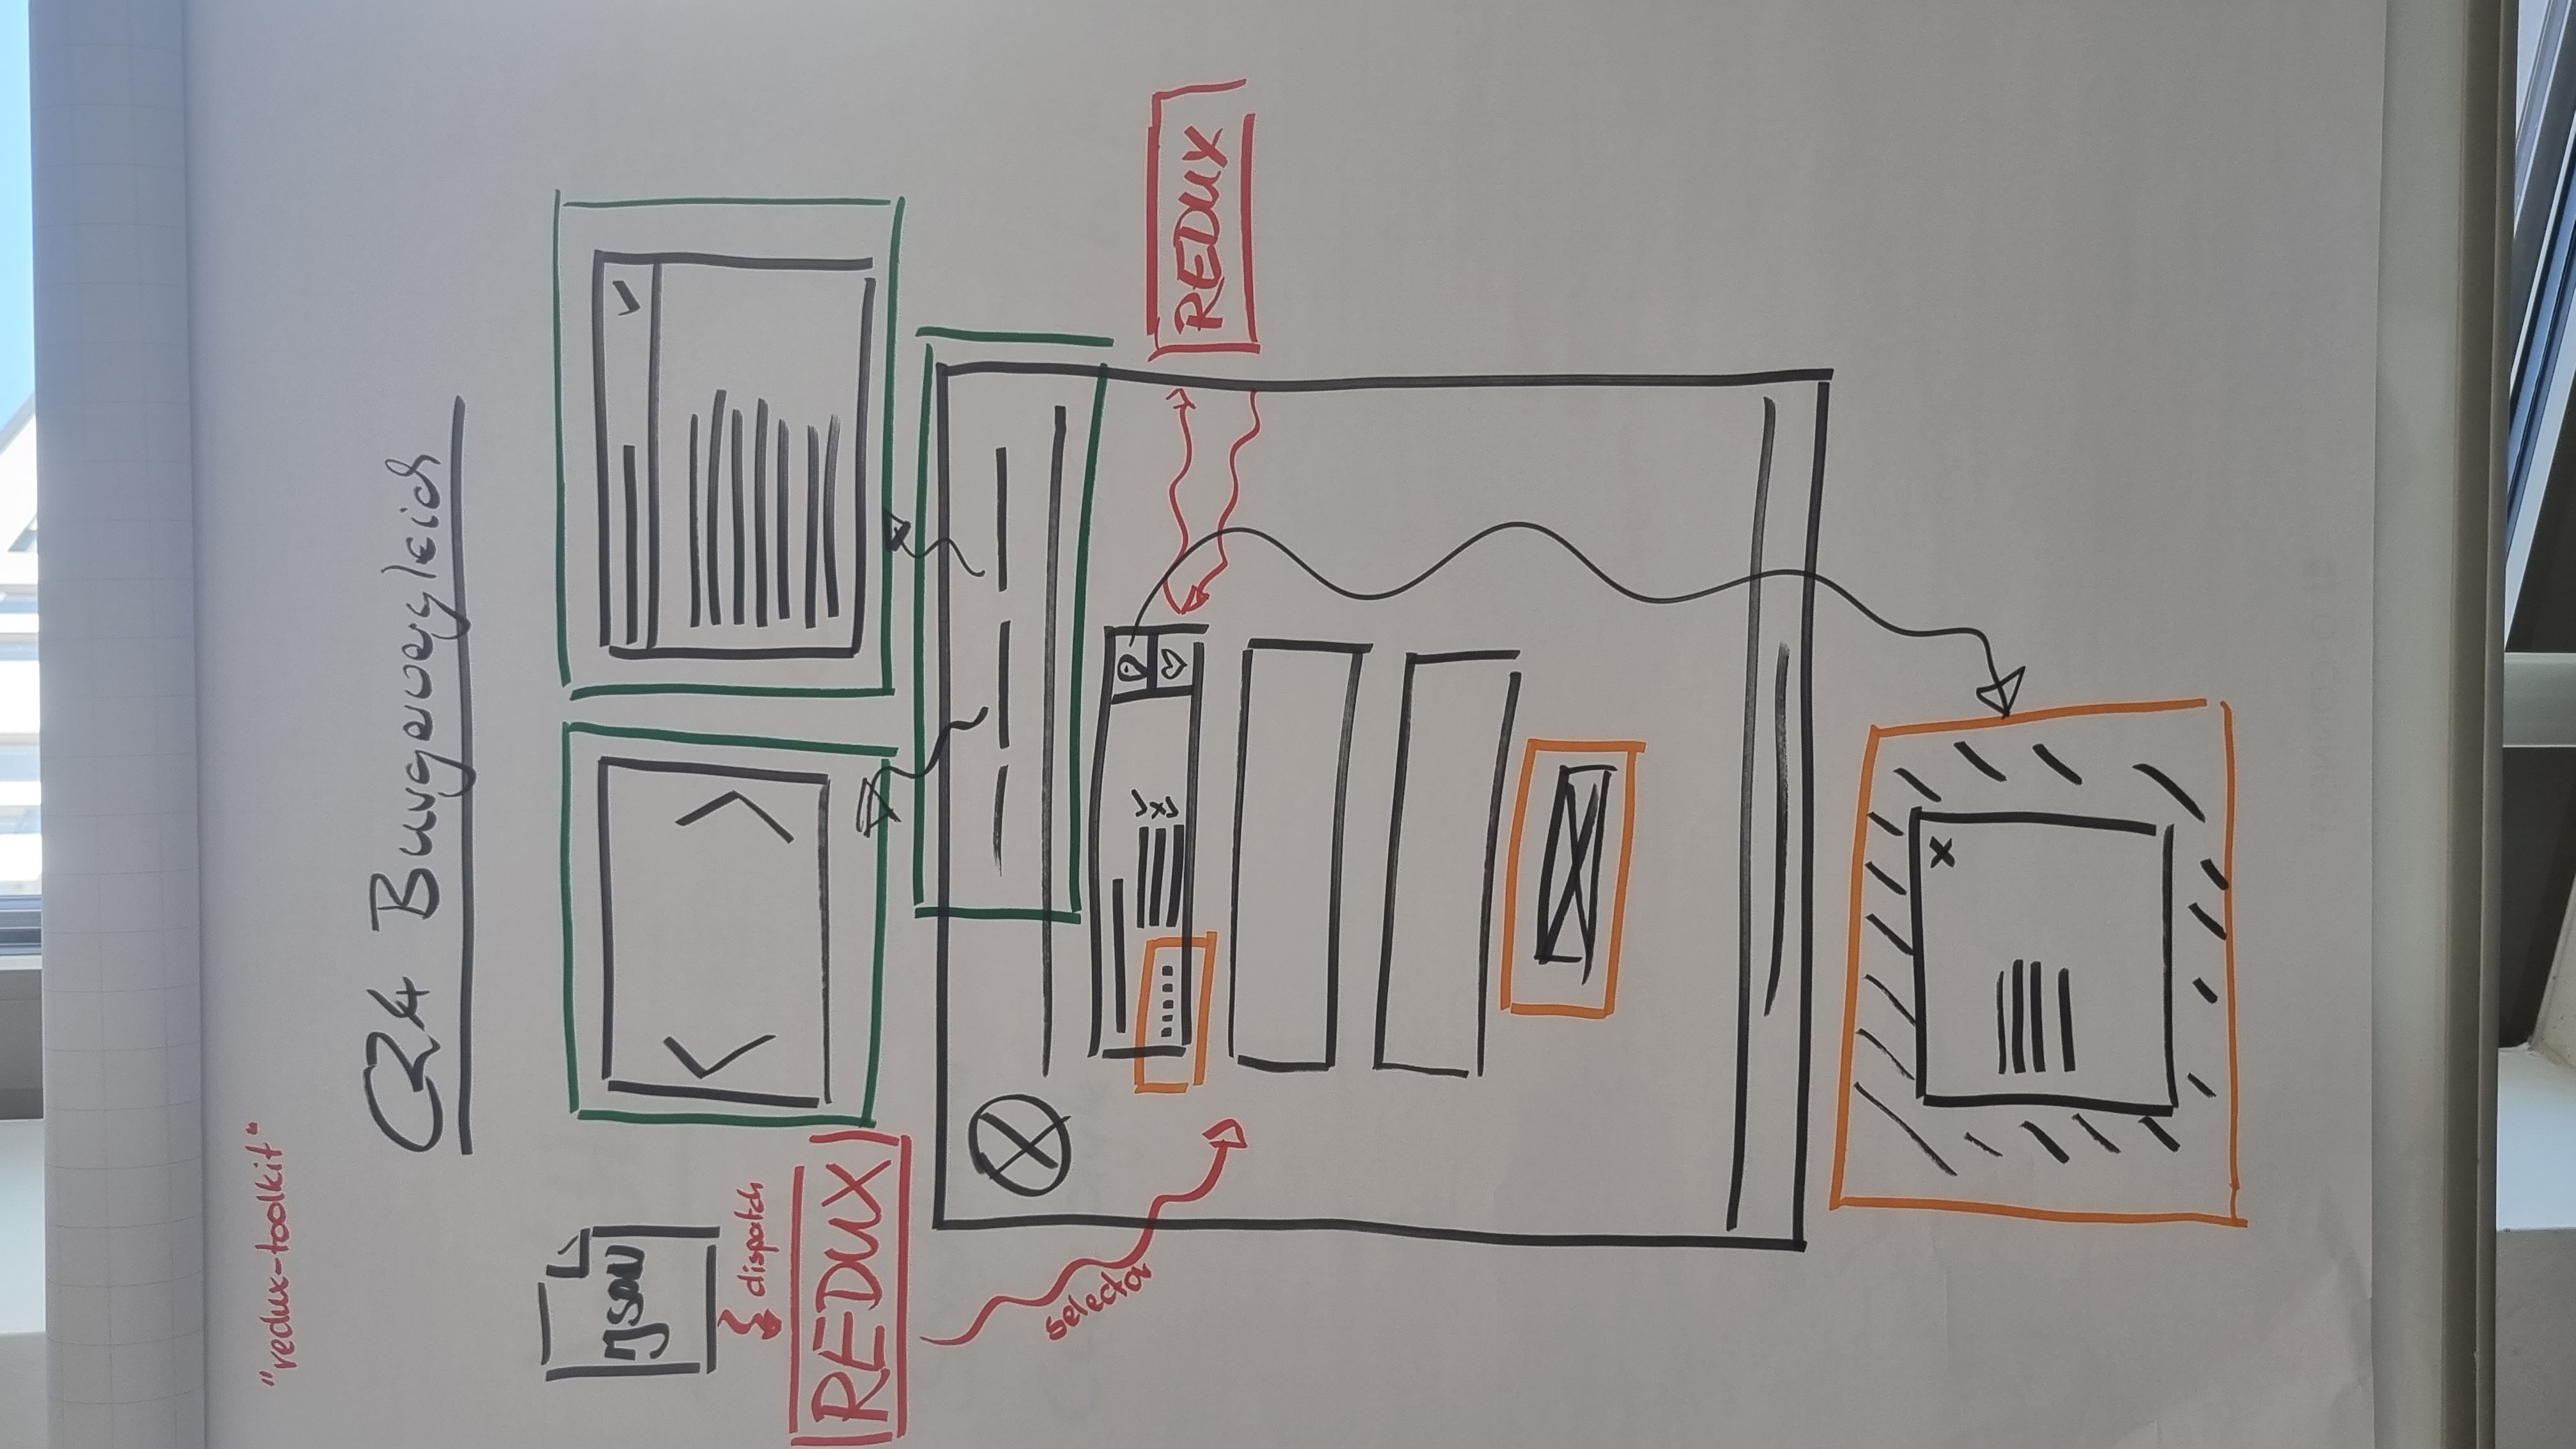 "redux-toolkit"
C24 Burgervergleich
JSON
dispatch
REDUX
selector
REDUX